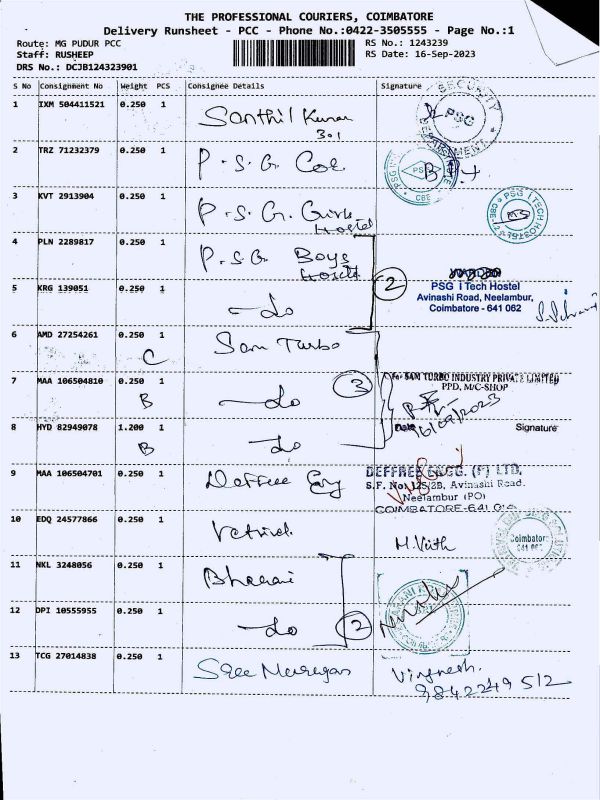 THE PROFESSIONAL COURIERS, COIMBATORE
Delivery Runsheet - PCC - Phone No.:0422-3505555 - Page No.:1
Route: MG PUDUR PCC
RS No.: 1243239
Staff: RUSHEEP
RS Date: 16-Sep-2023
DRS No.: DCJB124323901
S No Consignment No Weight PCS Consignee Details Signature
1 IXM 504411521 0.250 1 Santhil Kumar
301
SECURITY
PSG
DEPARTMENT
2 TRZ 71232379 0.250 1 P.S.G. Coe
3 KVT 2913904 0.250 1 P.S.G. Girls
Hostel
PSG iTECH HOSTEL
4 PLN 2289817 0.250 1 P.S.G Boys
Hostel
WARDEN
5 KRG 139051 0.250 1 -do
2
PSG iTech Hostel
Avinashi Road, Neelambur,
Coimbatore - 641 062
6 AMD 27254261 0.250 1 Sam Turbo
C
7 MAA 106504810 0.250 1 -do
B
3
For SAM TURBO INDUSTRY PRIVATE LIMITED
PPD, M/C-SHOP
8 HYD 82949078 1.200 1 -do
B
Date 16/09/2023 Signature
9 MAA 106504701 0.250 1 Deffree Eng
DEFFREE ENGG. (P) LTD.
S.F. No. 125/2B, Avinashi Road,
Neelambur (PO)
COIMBATORE-641 014
10 EDQ 24577866 0.250 1
Coimbatore
11 NKL 3248056 0.250 1 Bhavani
12 DPI 10555955 0.250 1 -do
2
13 TCG 27014838 0.250 1 Sree Murugan
Vignesh.
9842249512